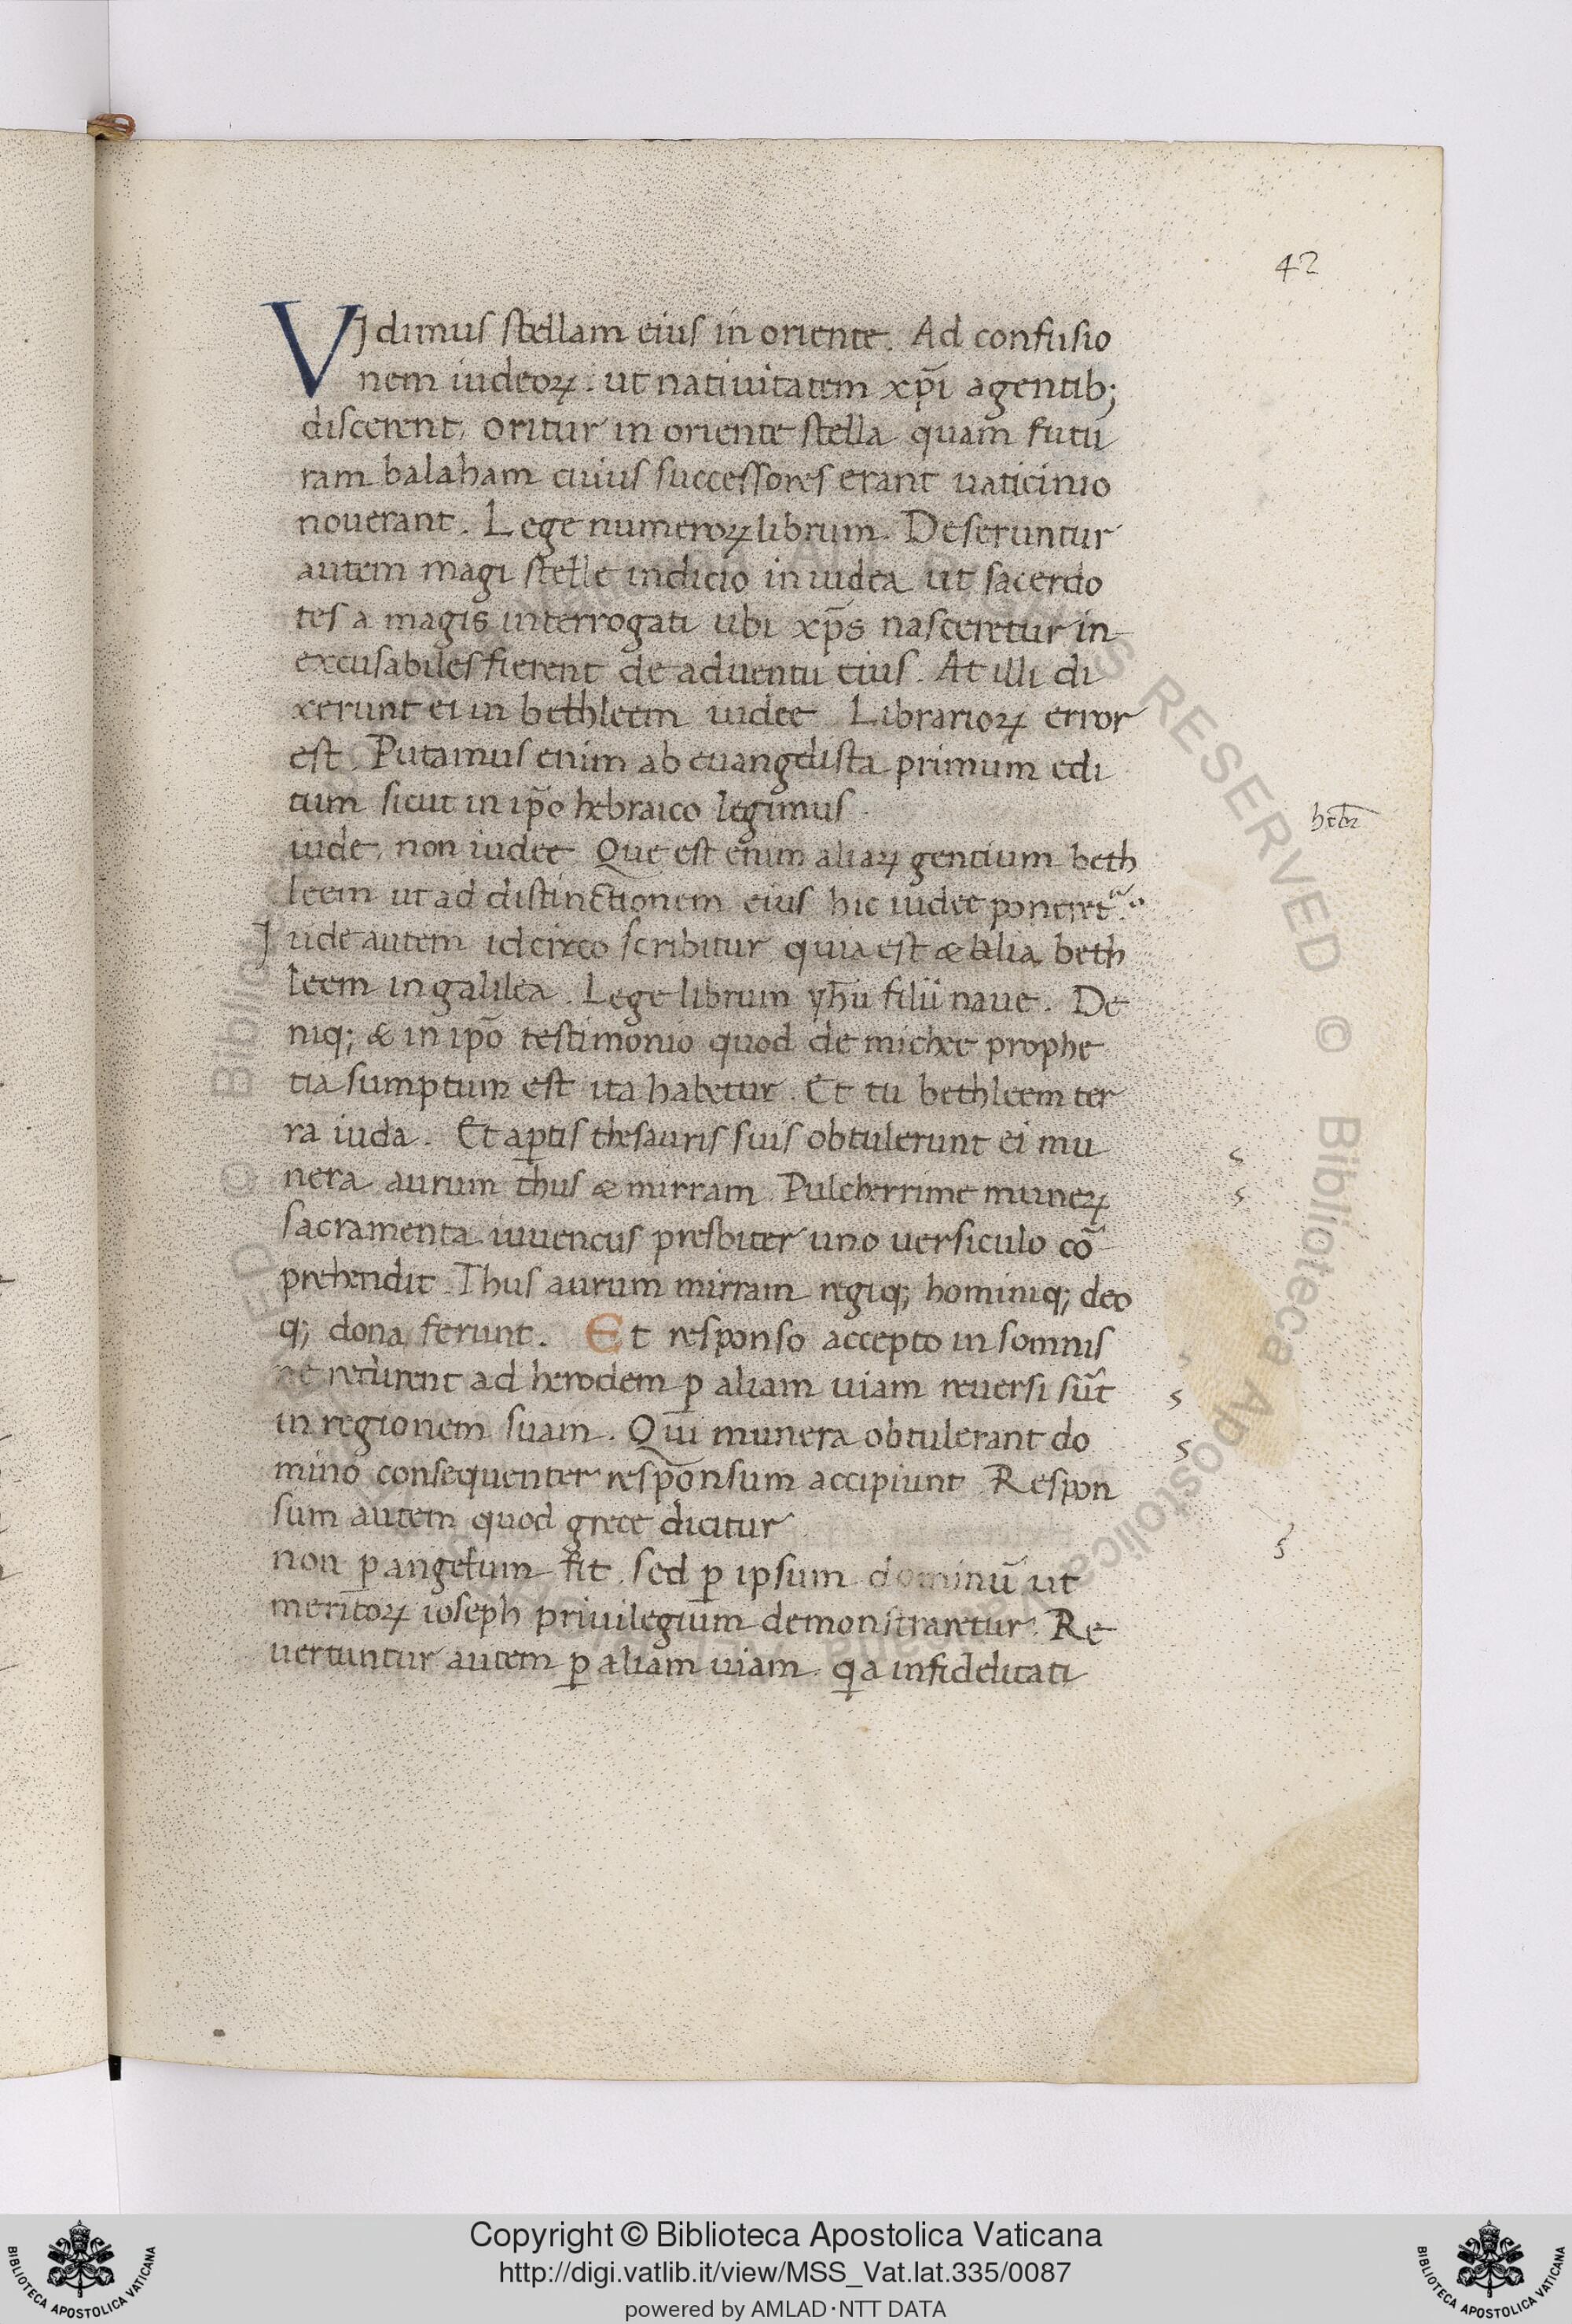 42
VIdimus stellam eius in oriente. Ad confusio
nem iudeoꝝ. ut natiuitatem xp̄i agentib;
discerent, oritur in oriente stella quam futu
ram balaham cuius successores erant uaticinio
nouerant. Lege numeroꝝ librum. Deseruntur
autem magi stelle indicio in iudea ut sacerdo
tes a magis interrogati ubi xp̄s nasceretur in
excusabiles fierent de aduentu eius. At illi di
xerunt ei in bethleem iudee Librarioꝝ error
est. Putamus enim ab euangelista primum edi
tum sicut in ip̄o hebraico legimus.
hebr̄
iude, non iudee. Que est enim aliaꝝ gentium beth
leem ut ad distinctionem eius hic iudee poneret᷑.
Iude autem idcirco scribitur quia est & alia beth
leem in galilea. Lege librum yh̄u filii naue. De
niq; & in ip̄o testimonio quod de michee prophe
tia sumptum est ita habetur. Et tu bethleem ter
ra iuda. Et aꝑtis thesauris suis obtulerunt ei mu
nera aurum thus & mirram. Pulcherrime muneꝝ
sacramenta iuuencus presbiter uno uersiculo cō
prehendit. Thus aurum mirram regiq; hominiq; deo
q; dona ferunt. Et responso accepto in somnis
ne redirent ad herodem ꝑ aliam uiam reuersi sūt
in regionem suam. Qui munera obtulerant do
mino consequenter responsum accipiunt. Respon
sum autem quod grece dicitur
non ꝑ angelum fit, sed ꝑ ipsum dominū ut
meritoꝝ ioseph priuilegium demonstraretur. Re
uertuntur autem ꝑ aliam uiam. qa infidelitati
Copyright © Biblioteca Apostolica Vaticana
http://digi.vatlib.it/view/MSS_Vat.lat.335/0087
powered by AMLAD·NTT DATA
BIBLIOTECA APOSTOLICA VATICANA
BIBLIOTECA APOSTOLICA VATICANA